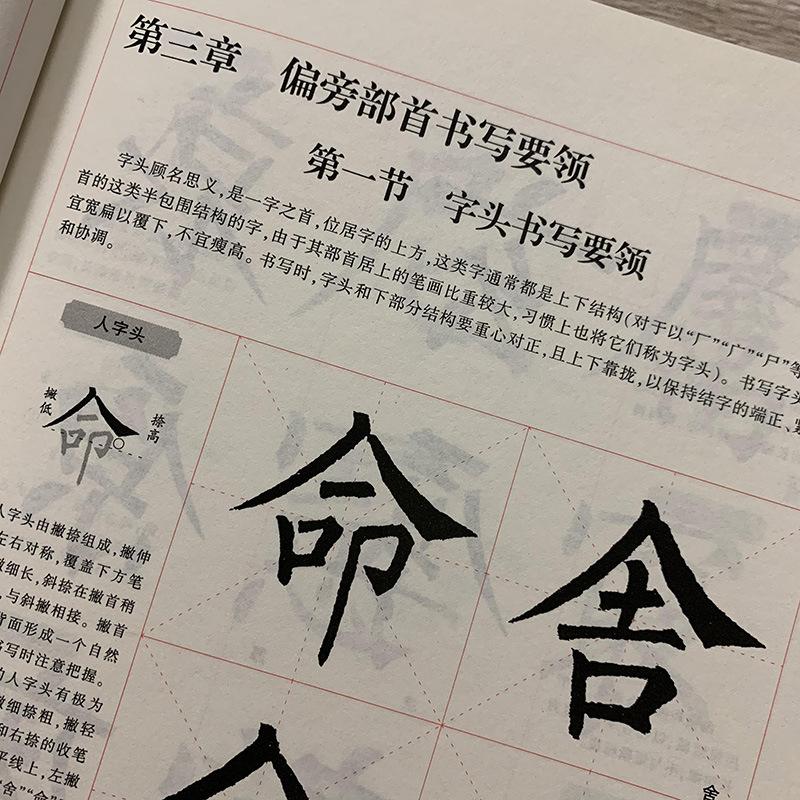 第三章 偏旁部首书写要领
第一节 字头书写要领
字头顾名思义,是一字之首,位居字的上方,这类字通常都是上下结构(对于以“厂”“广”“尸”等
首的这类半包围结构的字,由于其部首居上的笔画比重较大,习惯上也将它们称为字头)。书写字头
宜宽扁以覆下,不宜瘦高。书写时,字头和下部分结构要重心对正,且上下靠拢,以保持结字的端正、
和协调。
人字头
撇低
命
捺高
人字头由撇捺组成,撇伸
左右对称,覆盖下方笔
撇细长,斜捺在撇首稍
,与斜撇相接。撇首
背面形成一个自然
书写时注意把握。
的人字头有极为
撇细捺粗,撇轻
和右捺的收笔
平线上,左撇
“舍”“命”
命
舍
舍